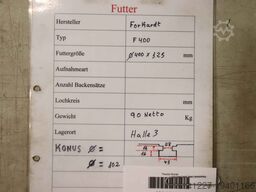 Futter
Hersteller Forkardt
Typ F 400
Futtergröße Ø400 x 125 mm
Aufnahmeart
Anzahl Backensätze
Lochkreis mm
Gewicht 90 Netto Kg
Lagerort Halle 3
KONUS Ø = 102